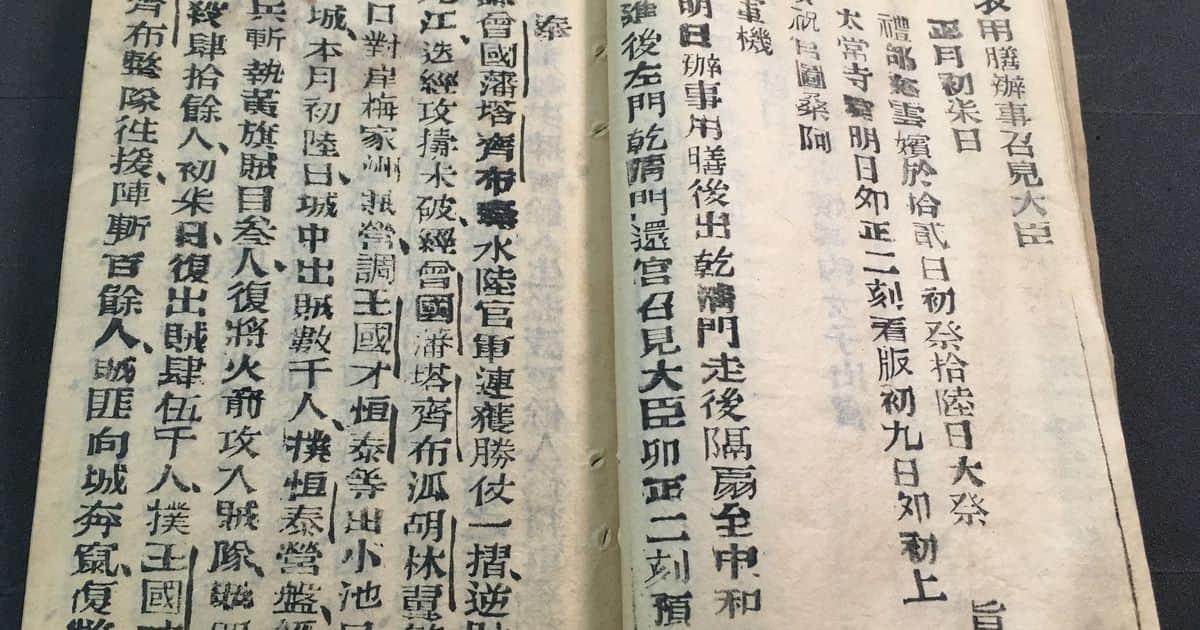 用膳辦事召見大臣
正月初柒日
禮部奏雲嬪於拾貳日初祭拾陸日大祭 旨
太常寺奏明日卯正二刻看版初九日卯初上
祝呂圖桑阿
軍機
明日辦事用膳後出乾清門走後隔扇至中和
進後左門乾清門還宮召見大臣卯正二刻預
奏
曾國藩塔齊布奏水陸官軍連獲勝仗一摺、逆
江、迭經攻擣未破、經曾國藩塔齊布派胡林翼
口對岸梅家洲賊營、調王國才恒泰等出小池
城、本月初陸日、城中出賊數千人、撲恒泰營盤、
兵斬執黃旗賊目叁人、復將火箭攻入賊隊、賊
殺肆拾餘人、初柒日、復出賊肆伍千人、撲王國
齊布整隊往援、陣斬百餘人、賊匪向城奔竄、復